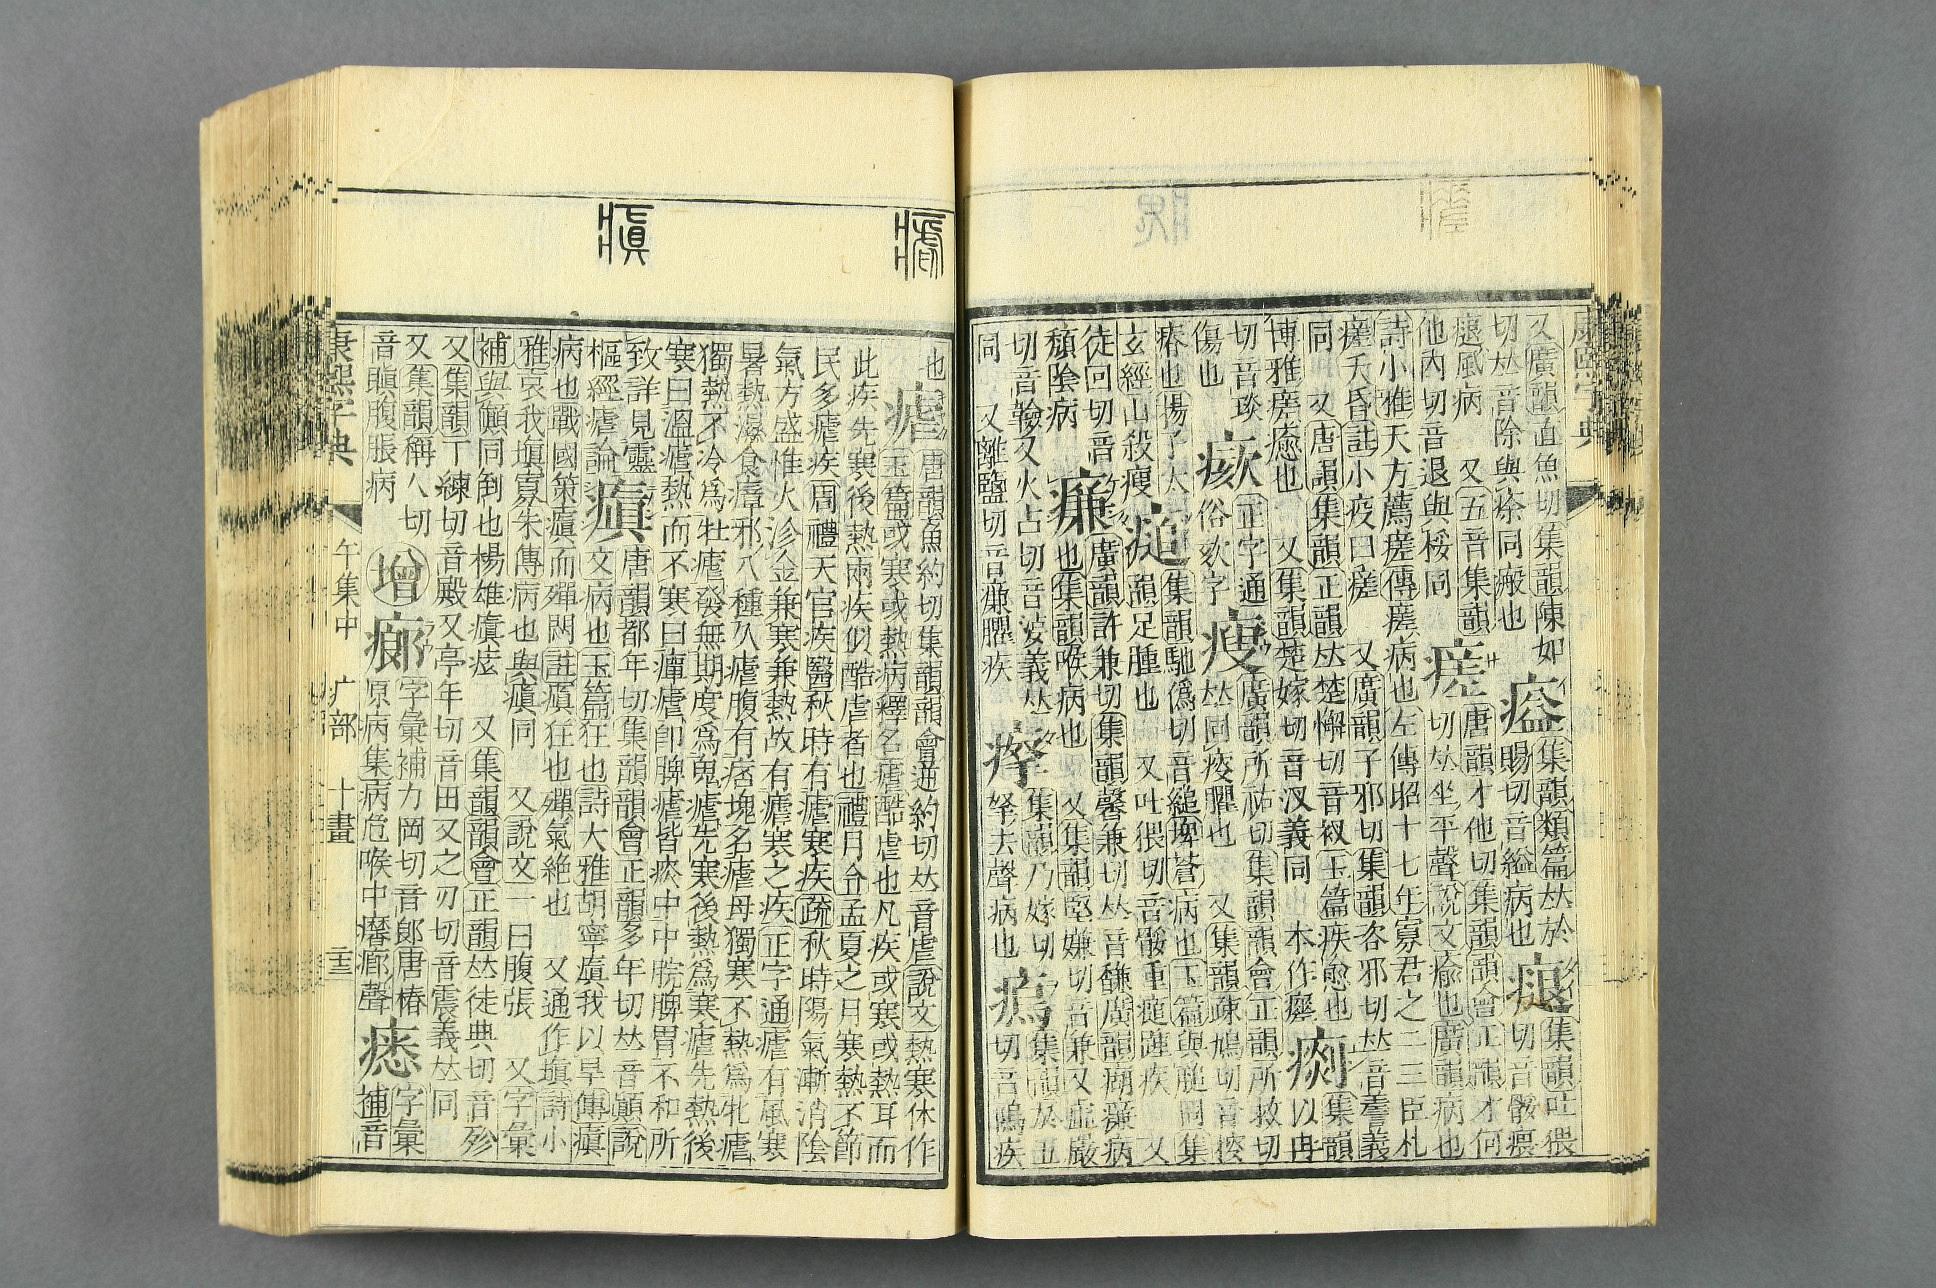 康熙字典
又廣韻直魚切集韻陳如
切𠀤音除與瘀同瘢也
集韻類篇𠀤於
賜切音縊病也
集韻吐猥
切音骽㾯
風病 又五音集韻
他內切音退與㾋同
瘥
唐韻才他切集韻韻會正韻才何
切𠀤坐平聲說文瘉也廣韻病也
詩小雅天方薦瘥傳瘥病也左傳昭十七年寡君之二三臣札
瘥夭昏註小疫曰瘥 又廣韻子邪切集韻咨邪切𠀤音罝義
同 又唐韻集韻正韻𠀤楚懈切音衩玉篇疾愈也
博雅瘥瘉也 又集韻楚嫁切音汊義同 本作𤻮
集韻
以冉
切音琰
傷也
正字通
俗欬字
瘦
廣韻所祐切集韻韻會正韻所救切
𠀤同 臞也 又集韻疎鳩切音
瘠也揚子太
玄經山殺瘦
集韻馳僞切音縋埤蒼病也玉篇與膇同集
韻足腫也 又吐猥切音骽重膇 疾 又
徒回切音
頹陰病
㾾
廣韻許兼切集韻馨兼切𠀤音馦廣韻 㾾病
也集韻喉病也 又集韻堅嫌切音兼又虛嚴
切音 又火占切音 義𠀤
同 又離鹽切音 臞疾
集韻乃嫁切
拏去聲病也
集韻於五
切音鄔疾
也
瘧
唐韻魚約切集韻韻會逆約切𠀤音虐說文熱寒休作
玉篇或寒或熱病釋名瘧酷虐也凡疾或寒或熱耳而
此疾先寒後熱兩疾似酷虐者也禮月令孟夏之月寒熱不節
民多瘧疾周禮天官疾醫秋時有瘧寒疾疏秋時陽氣漸消陰
氣方盛惟火沴金兼寒兼熱故有瘧寒之疾正字通瘧有風寒
暑熱濕食瘴邪八種久瘧腹有痞塊名瘧母獨寒不熱爲牝瘧
獨熱不冷爲牡瘧發無期度爲鬼瘧先寒後熱爲寒瘧先熱後
寒曰溫瘧熱而不寒曰癉瘧卽脾瘧皆瘀中中脘脾胃不和所
致詳見靈
樞經瘧論
瘨
唐韻都年切集韻韻會正韻多年切𠀤音顚說
文病也玉篇狂也詩大雅胡寧瘨我以旱傳瘨
病也戰國策瘨而殫悶註瘨狂也殫氣絶也 又通作塡詩小
雅哀我塡寡朱傳病也與瘨同 又說文一曰腹張 又字彙
補與顚同倒也楊雄 又集韻韻會正韻𠀤徒典切音殄
又集韻丁練切音殿又亭年切音田又之刃切音震義𠀤同
又集韻稱人切
音瞋腹脹病
增
𤸱
字彙補力岡切音郞唐椿
原病集病危喉中 聲
字彙
補音
康熙字典
午集中 疒部 十畫